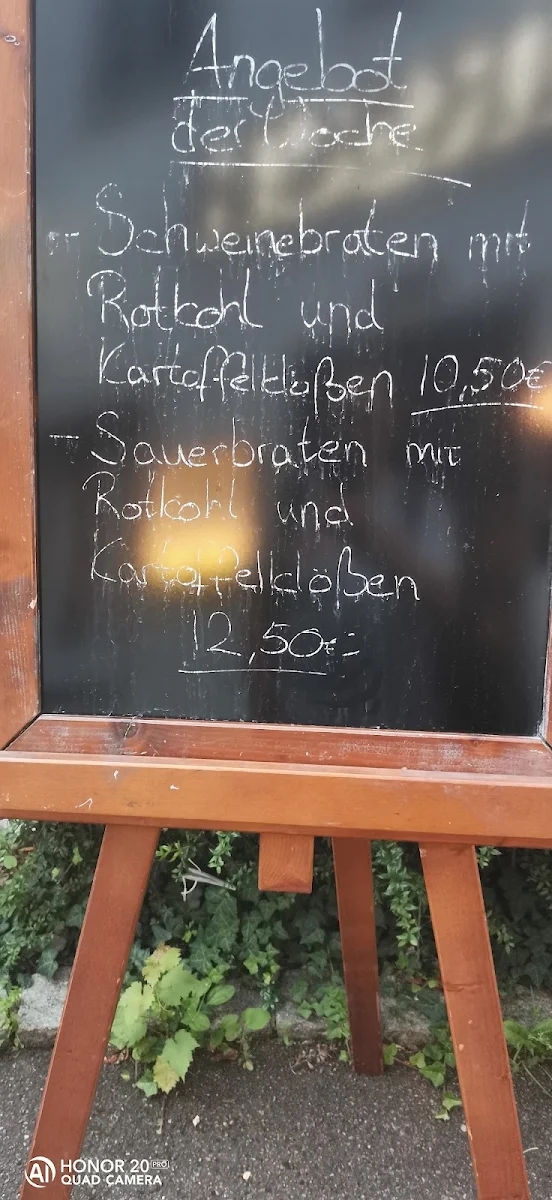 Angebot
der Woche
- Schweinebraten mit
Rotkohl und
Kartoffelklößen 10,50€
- Sauerbraten mit
Rotkohl und
Kartoffelklößen
12,50€
HONOR 20 PRO
QUAD CAMERA